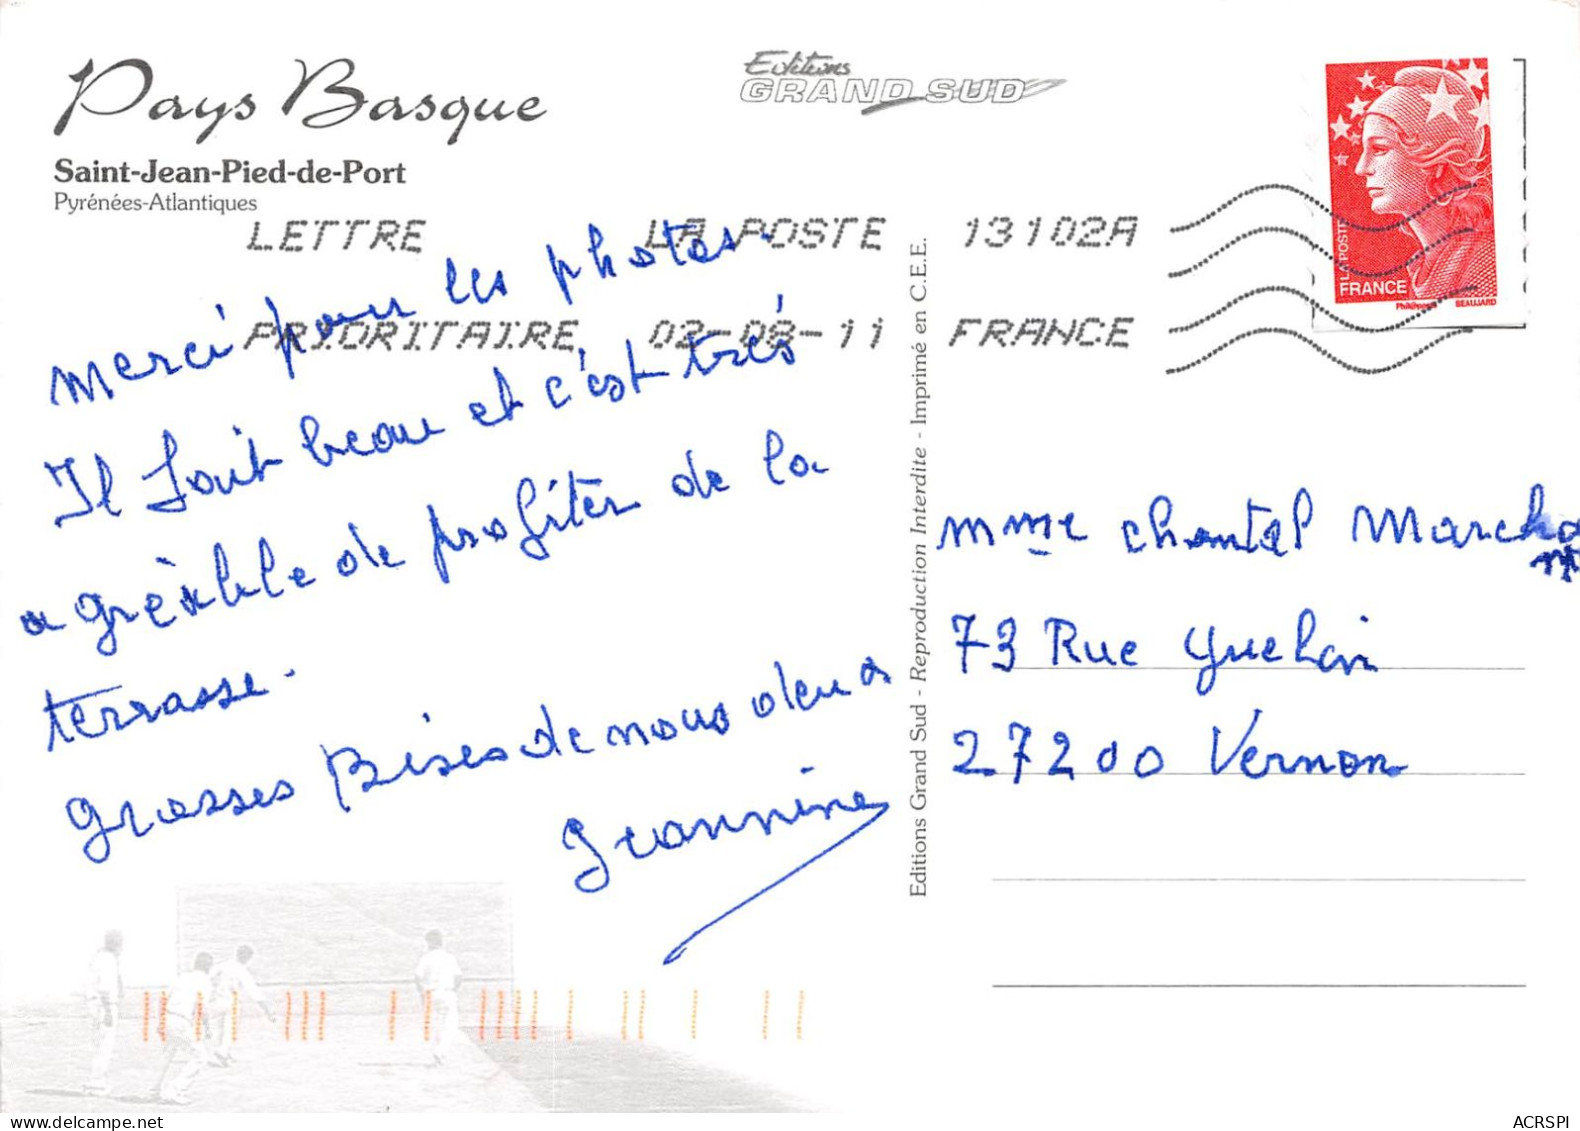 Pays Basque
Saint-Jean-Pied-de-Port
Pyrénées-Atlantiques
Editions
GRAND SUD
LETTRE LA POSTE 13102A
PRIORITAIRE 02-08-11 FRANCE
LA POSTE
FRANCE
Philippe BEAUJARD
merci pour les photos.
Il fait beau et c'est très
agrèable de profiter de la
terrasse.
grosses Bises de nous deux
Jeannine
Editions Grand Sud - Reproduction Interdite - Imprimé en C.E.E.
mme chantal Marcha
nt
73 Rue
27200 Vernon
ACRSPI